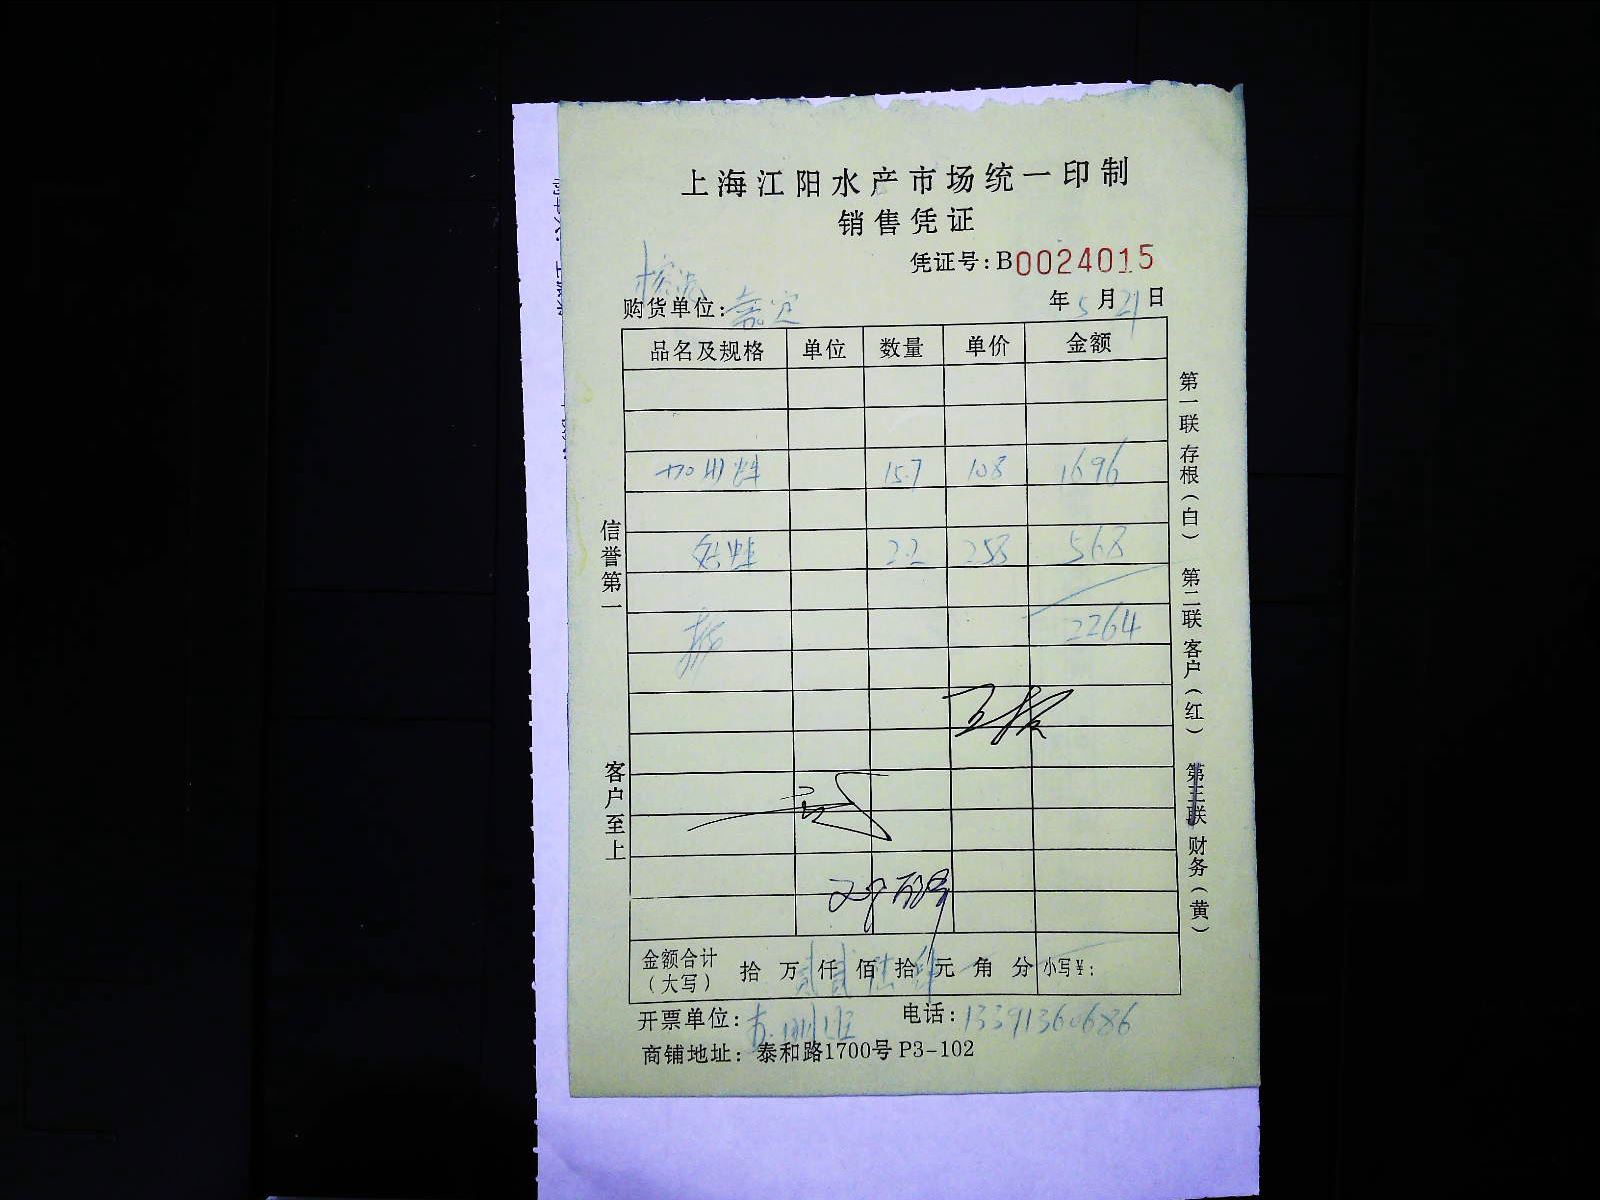 上海江阳水产市场统一印制
销售凭证
凭证号:B0024015
购货单位:嘉定 年5月21日
品名及规格 单位 数量 单价 金额
15.7 108 1696
2.2 258 568
2264
信誉第一
客户至上
第一联 存根(白) 第二联 客户(红) 第三联 财务(黄)
金额合计(大写) 拾 万 贰仟 贰佰 陆拾 肆元 角 分 小写¥:
开票单位: 电话:13391360686
商铺地址: 泰和路1700号 P3-102